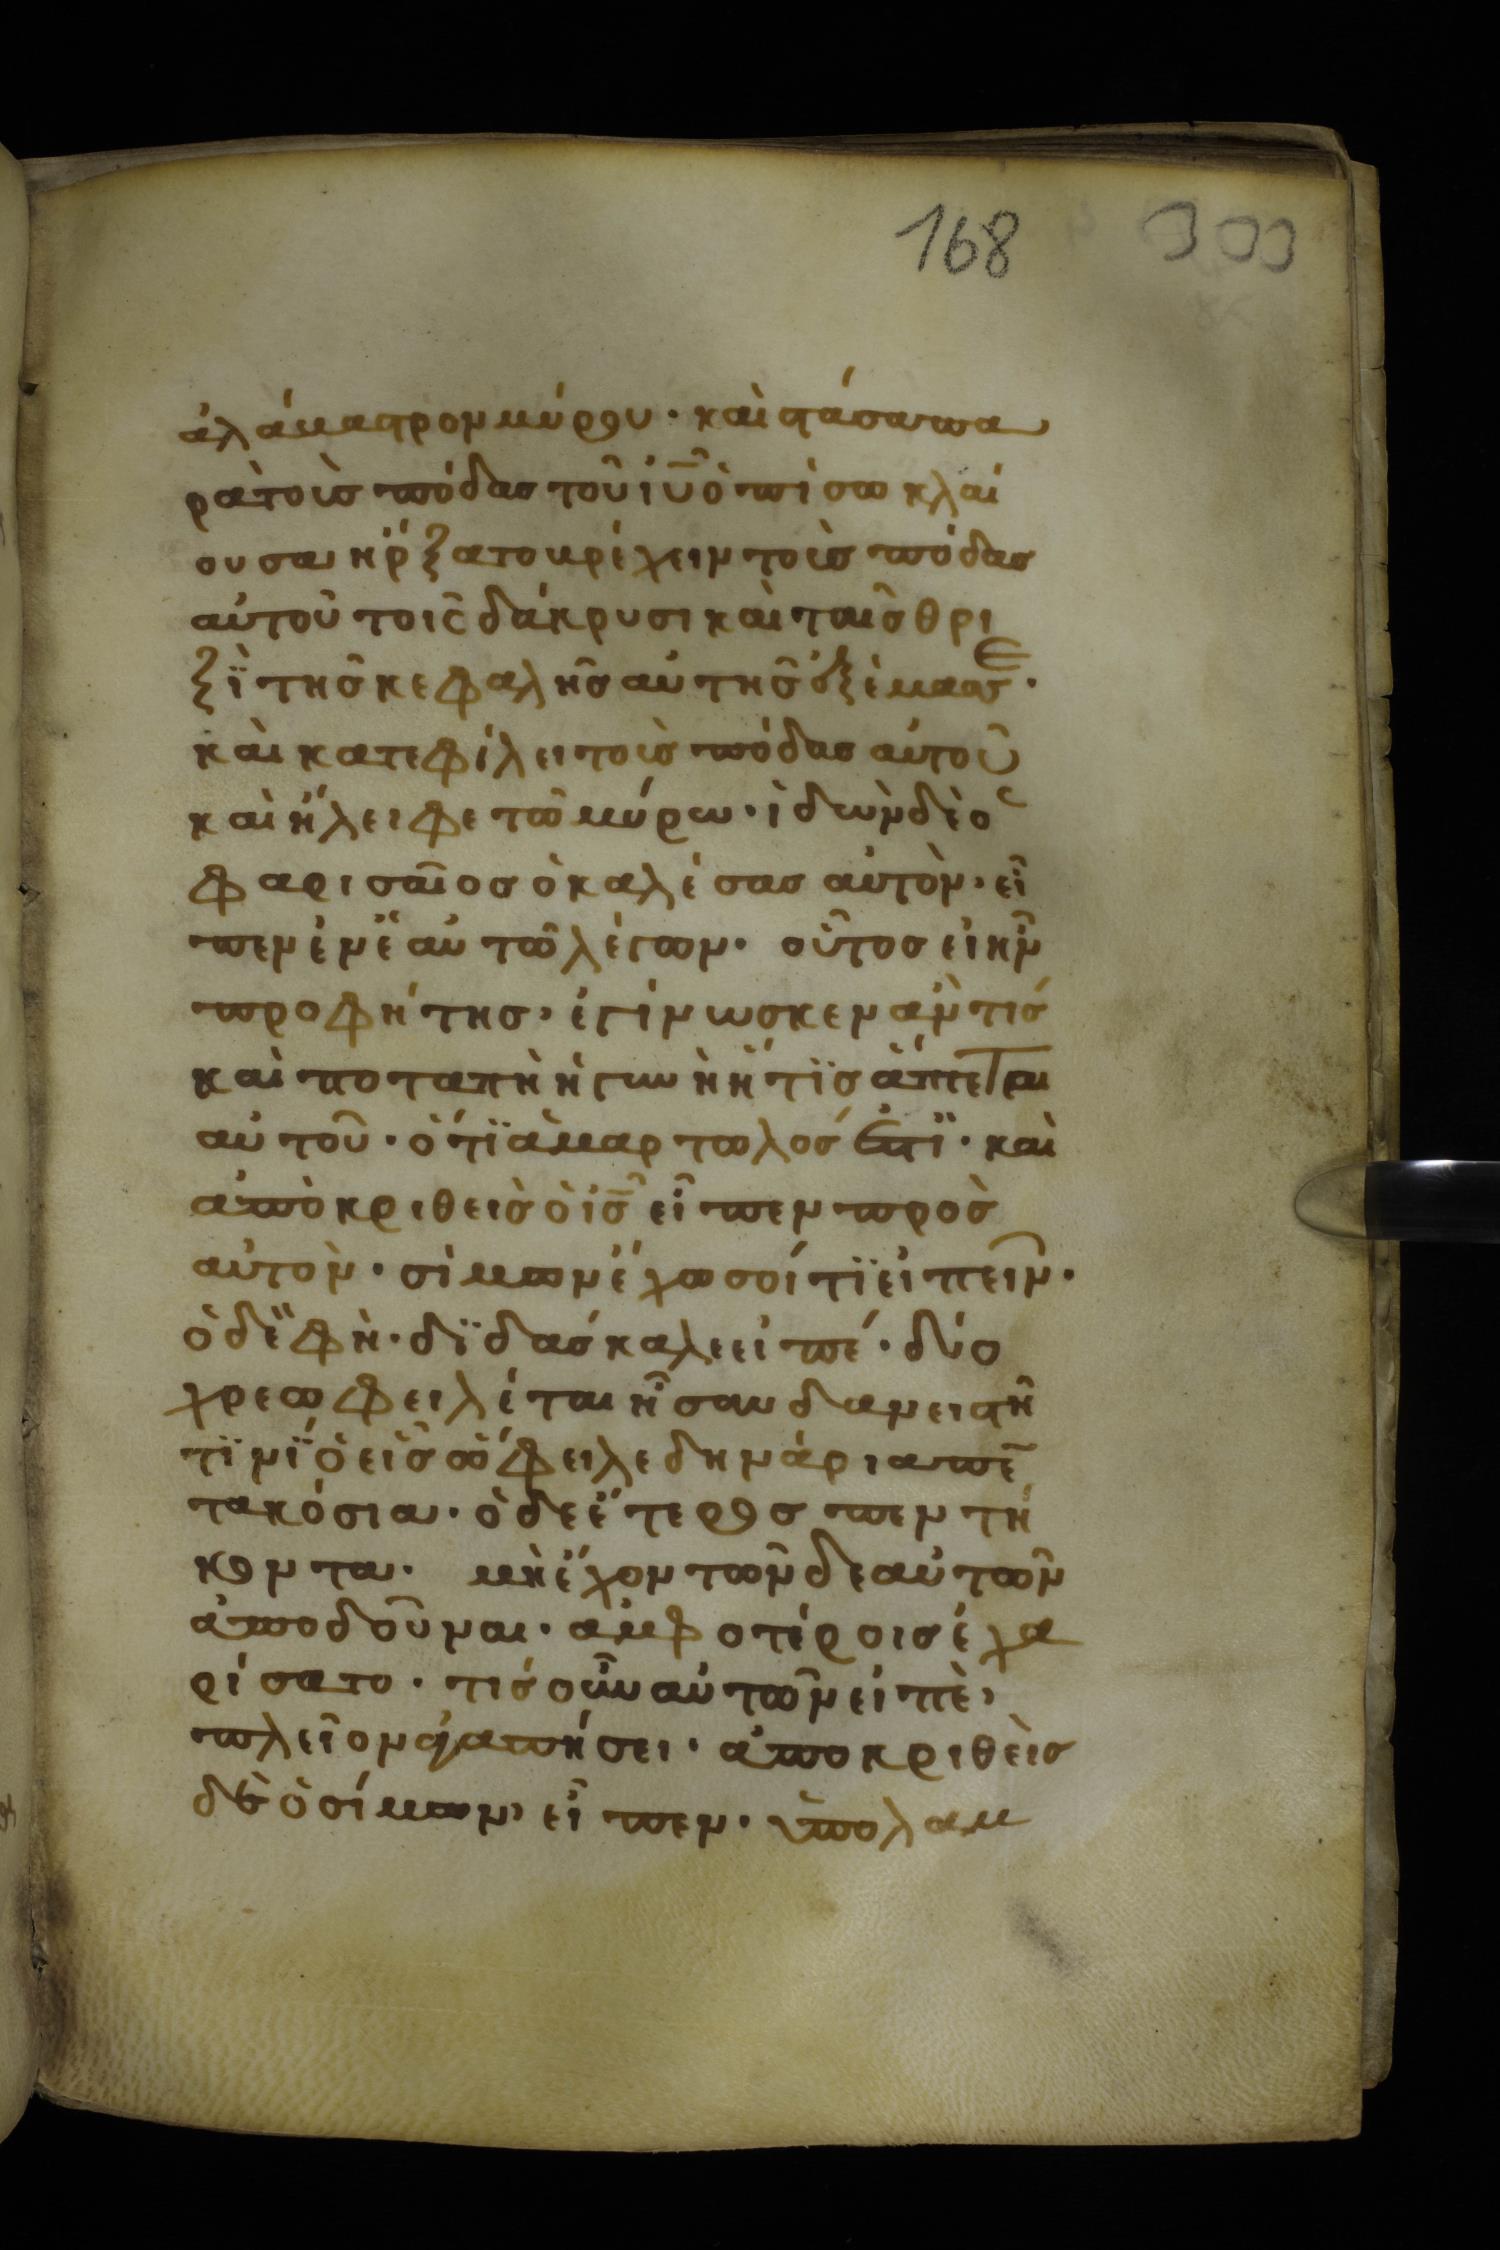 168 300
ἀλάβαστρον μύρου · καὶ στάσα πα
ρὰ τοὺς πόδας τοῦ ἰῡ ὀπίσω κλαί
ουσα ἤρξατο βρέχειν τοὺς πόδας
αὐτοῦ τοῖς δάκρυσι καὶ ταῖς θρι
ξὶ τῆς κεφαλῆς αὐτῆς ἐξέμασσε ·
καὶ κατεφίλει τοὺς πόδας αὐτοῦ
καὶ ἤλειφε τῶ μύρω · ἰδὼν δὲ ὁ
φαρισαῖος ὁ καλέσας αὐτὸν, εἶ
πεν ἐν ἑαυτῶ λέγων · οὗτος εἰ ἦν
προφήτης, ἐγίνωσκεν ἂν τίς
καὶ ποταπὴ ἡ γυνὴ ἥτις ἅπτεται
αὐτοῦ · ὅτι ἁμαρτωλός ἐστι · καὶ
ἀποκριθεὶς ὁ ἰς̄ εἶπεν πρὸς
αὐτὸν · σίμων ἔχω σοί τι εἰπεῖν ·
ὁ δὲ φὴ · διδάσκαλε εἰπέ · δύο
χρεωφειλέται ἦσαν δανειστῆ
τινί ὁ εἷς ὤφειλε δηνάρια πε̄
τακόσια · ὁ δὲ ἕτερος πεντή
κοντα · μὴ ἐχόντων δὲ αὐτῶν
ἀποδοῦναι · ἀμφοτέροις ἐχα
ρίσατο · τίς οὖν αὐτῶν εἰπὲ,
πλεῖον ἀγαπήσει · ἀποκριθεὶς
δὲ ὁ σίμων, εἶπεν · ὑπολαμ